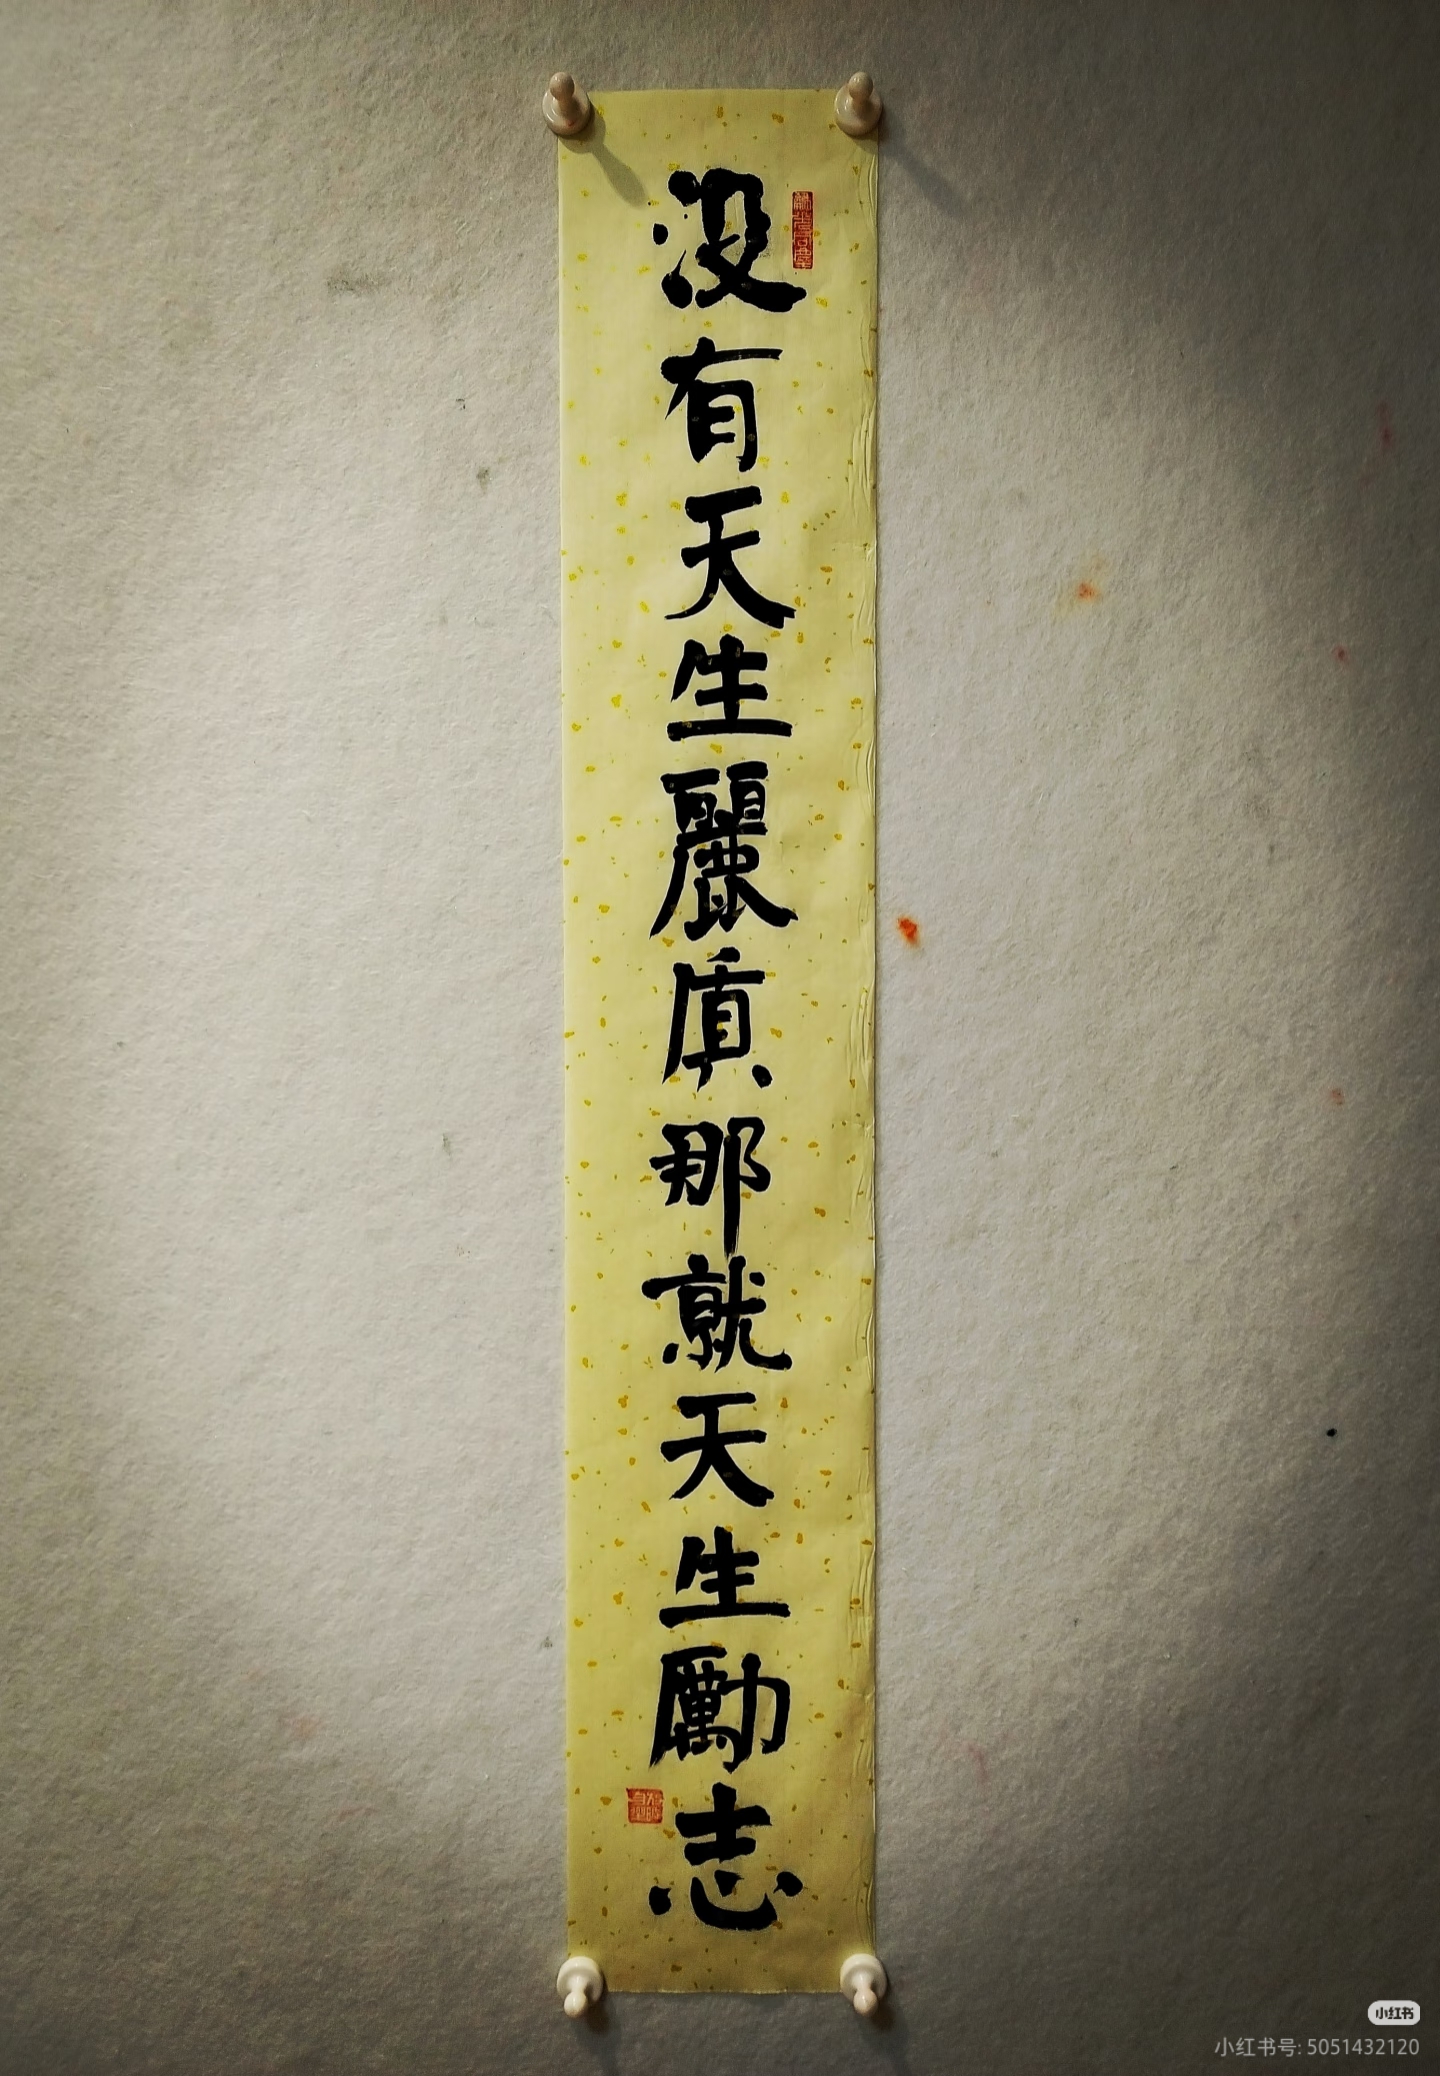 没有天生麗質那就天生勵志
小红书
小红书号: 5051432120